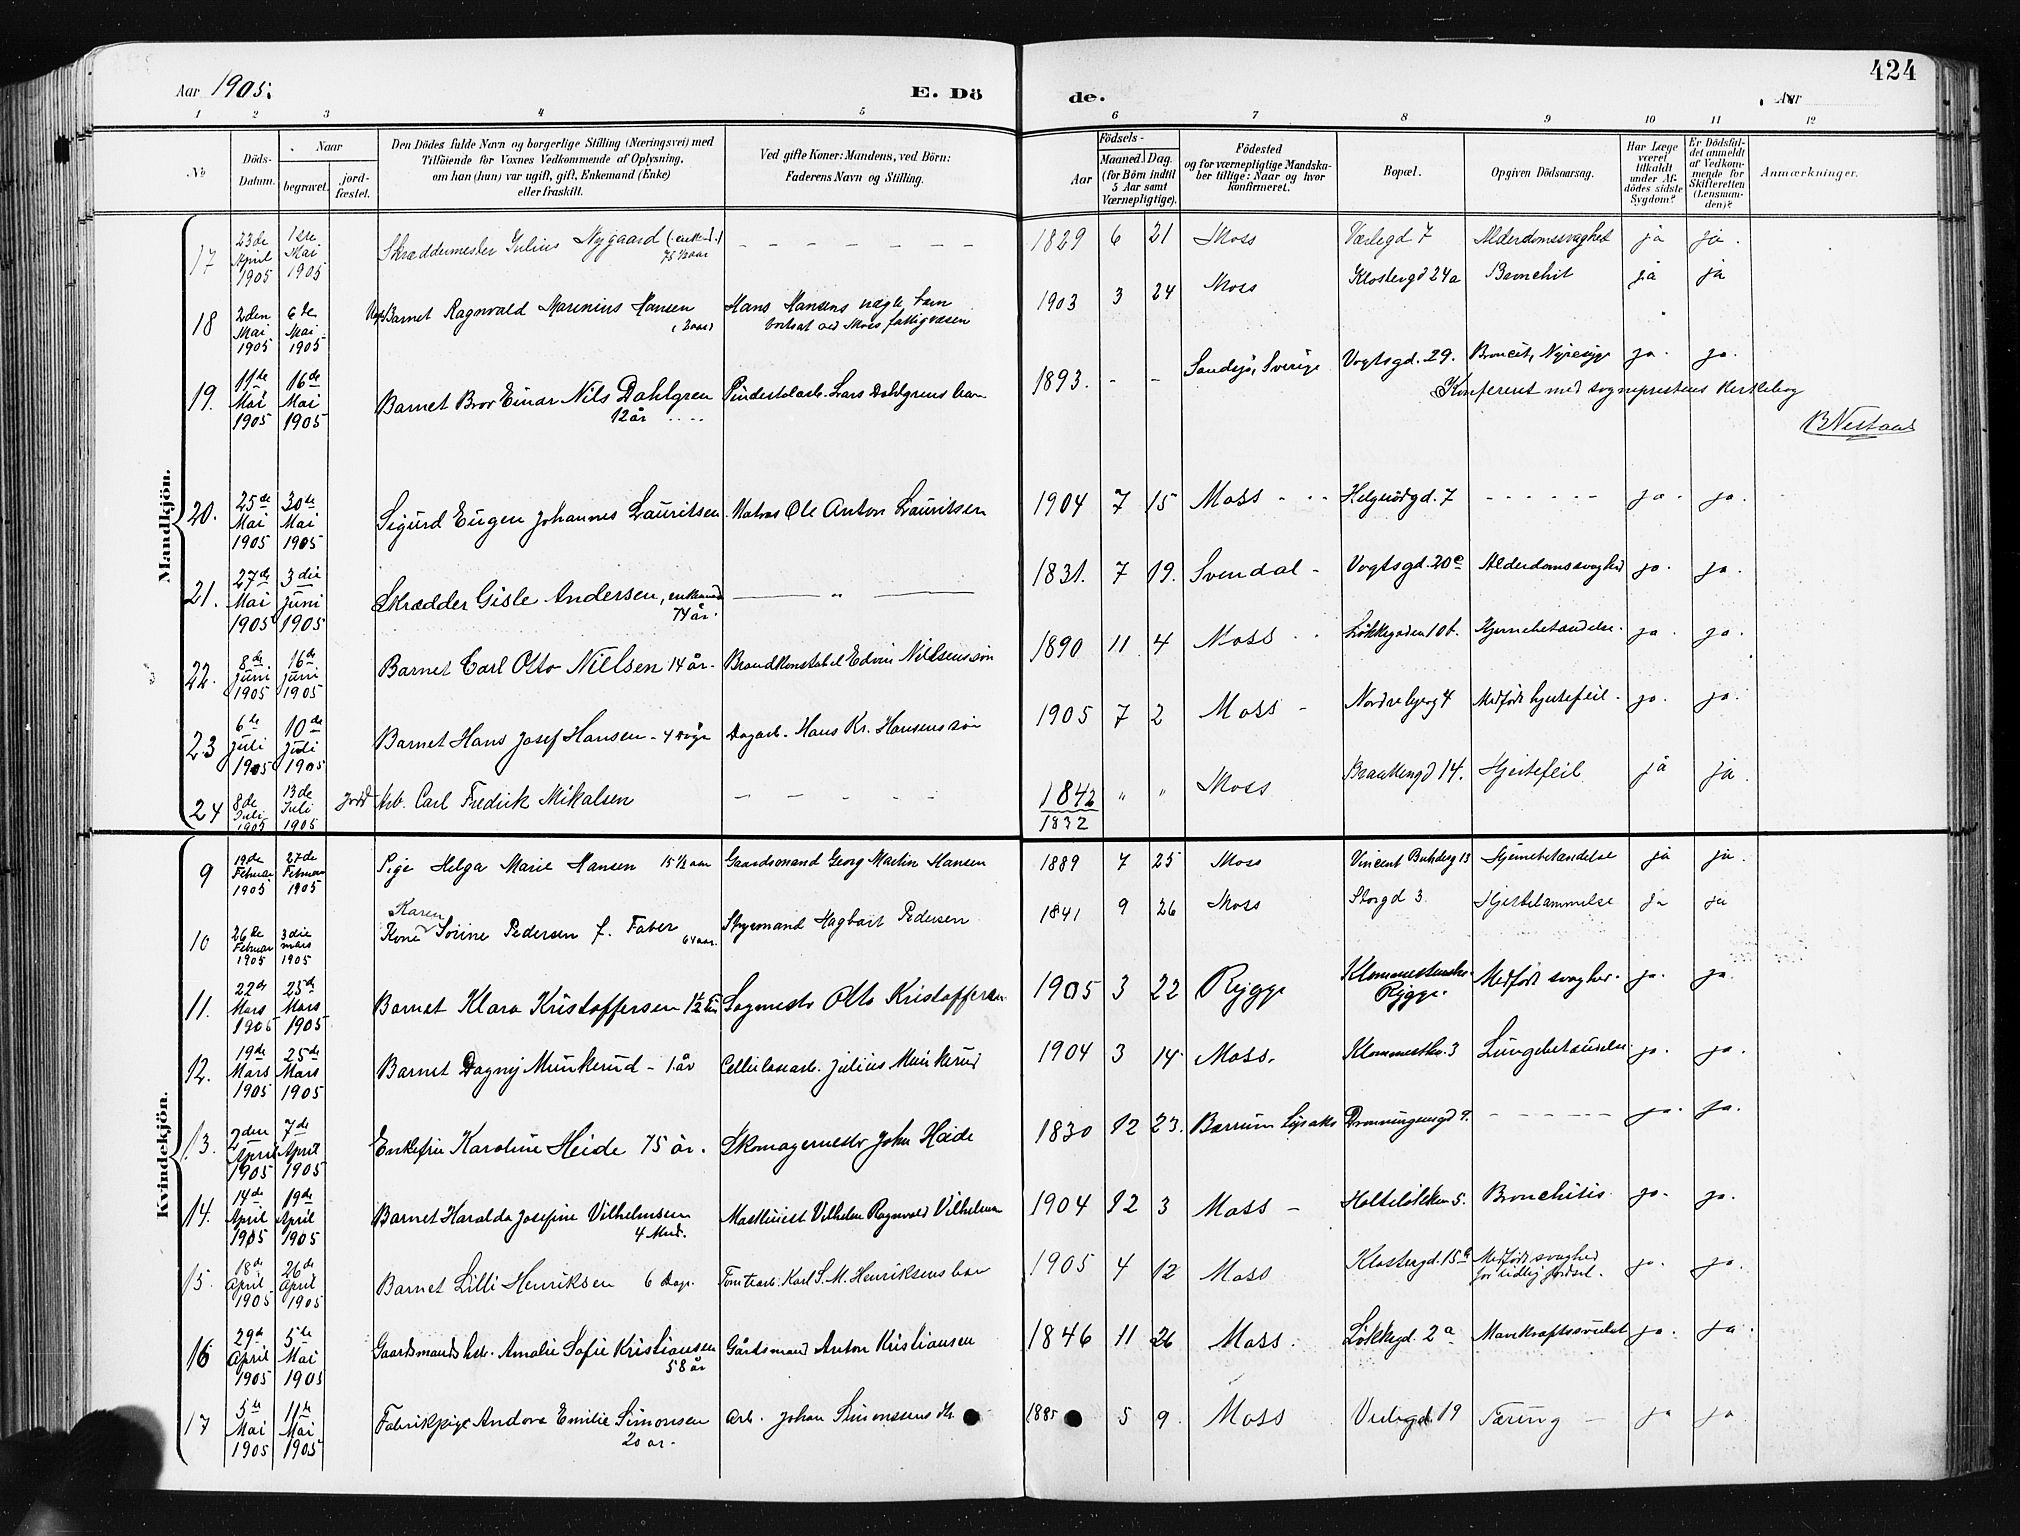 424
Aar 1905. E. Dö de. Aar
1 2 3 4 5 6 7 8 9 10 11 12
No
Döds-Datum.
Naar
begravet.
jord-fæstet.
Den Dödes fulde Navn og borgerlige Stilling (Næringsvei) med
Tilföiende for Voxnes Vedkommende af Oplysning,
om han (hun) var ugift, gift, Enkemand (Enke)
eller fraskilt.
Ved gifte Koner: Mandens, ved Börn:
Faderens Navn og Stilling.
Födsels-
Aar
Maaned. Dag.
(for Börn indtil
5 Aar samt
Værnepligtige).
Födested
og for værnepligtige Mandska-
ber tillige: Naar og hvor
konfirmeret.
Bopæl.
Opgiven Dödsaarsag.
Har Læge
været
tilkaldt
under Af-
dödes sidste
Sygdom?
Er Dödsfal-
det anmeldt
af Vedkom-
mende for
Skifteretten
(Lensman-
den)?
Anmærkninger.
Mandkjön.
17 23de April 1905 1ste Mai 1905 Skræddermester Julius Nygaard (enkem.) 75 1/2 aar — — — 1829 6 21 Moss Værlegd 7 Alderdomssvaghet ja ja.
18 2den Mai 1905 6te Mai 1905 Barnet Ragnvald Marenius Hansen (2 aar) Hans Hansens uægte barn bortsat ved Moss fattigvæsen 1903 3 24 Moss Klostergd 24a Bronchit ja ja
19. 11te Mai 1905 16de Mai 1905 Barnet Bror Einar Nils Dahlgren 12 år Lars Dahlgrens barn 1893. - - Sverige Vogtsgd. 29. Broncit, Nyresyge ja. ja.
Konfereret med sogneprestens Kirkebog
BNestaas
20. 25de Mai 1905 30te Mai 1905 Sigurd Eugen Johannes Lauritsen Matros Ole Anton Lauritsen 1904 7 15 Moss - Helgerødgd. 7 - - - - ja. ja.
21. 27de Mai 1905 3die Juni 1905 Skrædder Gisle Andersen, enkemand 74 år. — „ — 1831. 7 19. Svendal - Vogtsgd. 20c Alderdomssvaghed ja. ja.
22. 8de Juni 1905 16de Juni 1905 Barnet Carl Otto Nielsen 14 år. Brandkonstabel Edvin Nielsens søn 1890 11 4 Moss Løkkegaden 10b. Hjernebetændelse. ja. ja.
23 6te Juli 1905 10de Juli 1905 Barnet Hans Josef Hansen - 4 dage Dagarb. Hans Kr. Hansens søn 1905 7 2 Moss - Nordre bjerg 4 Medfødt hjertefeil. ja. ja.
24 8de Juli 1905 13de Juli 1905 Arb. Carl Fredrik Mikalsen — — — 1842 1832 „ „ Moss 14. Hjertefeil ja ja
Kvindekjön.
9 19de Februar 1905 27de Februar 1905 Pige Helga Marie Hansen 15 1/2 aar Gaardsmand Georg Martin Hansen 1889 7 25 Moss Vincent 13 Hjernebetændelse ja ja.
10 26de Februar 1905 3die mars 1905 Kone Karen Sorine Pedersen f. Faber 64 aar. Styrmand Hagbart Pedersen 1841 9 26 Moss Storgd 3. Hjertelammelse Ja ja
11. 22de Mars 1905 25de Mars 1905 Barnet Klara Kristoffersen 1 1/2 Sagmestr Otto Kristoffersen 1905 3 22 Rygge Rygge. Medfødt svaghet. ja. ja.
12. 19de Mars 1905 25de Mars 1905 Barnet Dagny Munkerud - 1 år Cellulosearb. Julius Munkerud 1904 3 14. Moss. 3 Lungebetændelse ja. ja.
13. 2den April 1905 7de April 1905 Enkefru Karoline Heide 75 år. Skomagermestr John Heide 1830 12 23. Bærrum Lysaker Dronningensgd 9. - - - - ja. ja.
14. 14de April 1905 19de April 1905 Barnet Haralda Josefine Vilhelmsen 4 Mnd. Maskinist Vilhelm Ragnvald Vilhelmsen 1904 12 3 Moss - 5. Bronchitis ja. ja.
15. 18de April 1905 26de April 1905 Barnet Lilli Henriksen 6 dage Tomtearb. Karl S. M. Henriksens barn 1905 4 12 Moss Klostergd. 15a Medfødt svaghed for tidlig fødsel. ja. ja.
16 29de April 1905 5te Mai 1905 Gaardsmands hst. Amalie Sofie Kristiansen 58 år Gårdsmand Anton Kristiansen 1846 11 26 Moss. Løkkegd. 2a Mavekræftsvulst ja. ja.
17 5te Mai 1905 11te Mai 1905 Fabrikpige Andora Emilie Simonsen 20 år. Arb. Johan Simonsens dtr. 1885 5 9. Moss Værlegd. 19 Tæring — ja ja